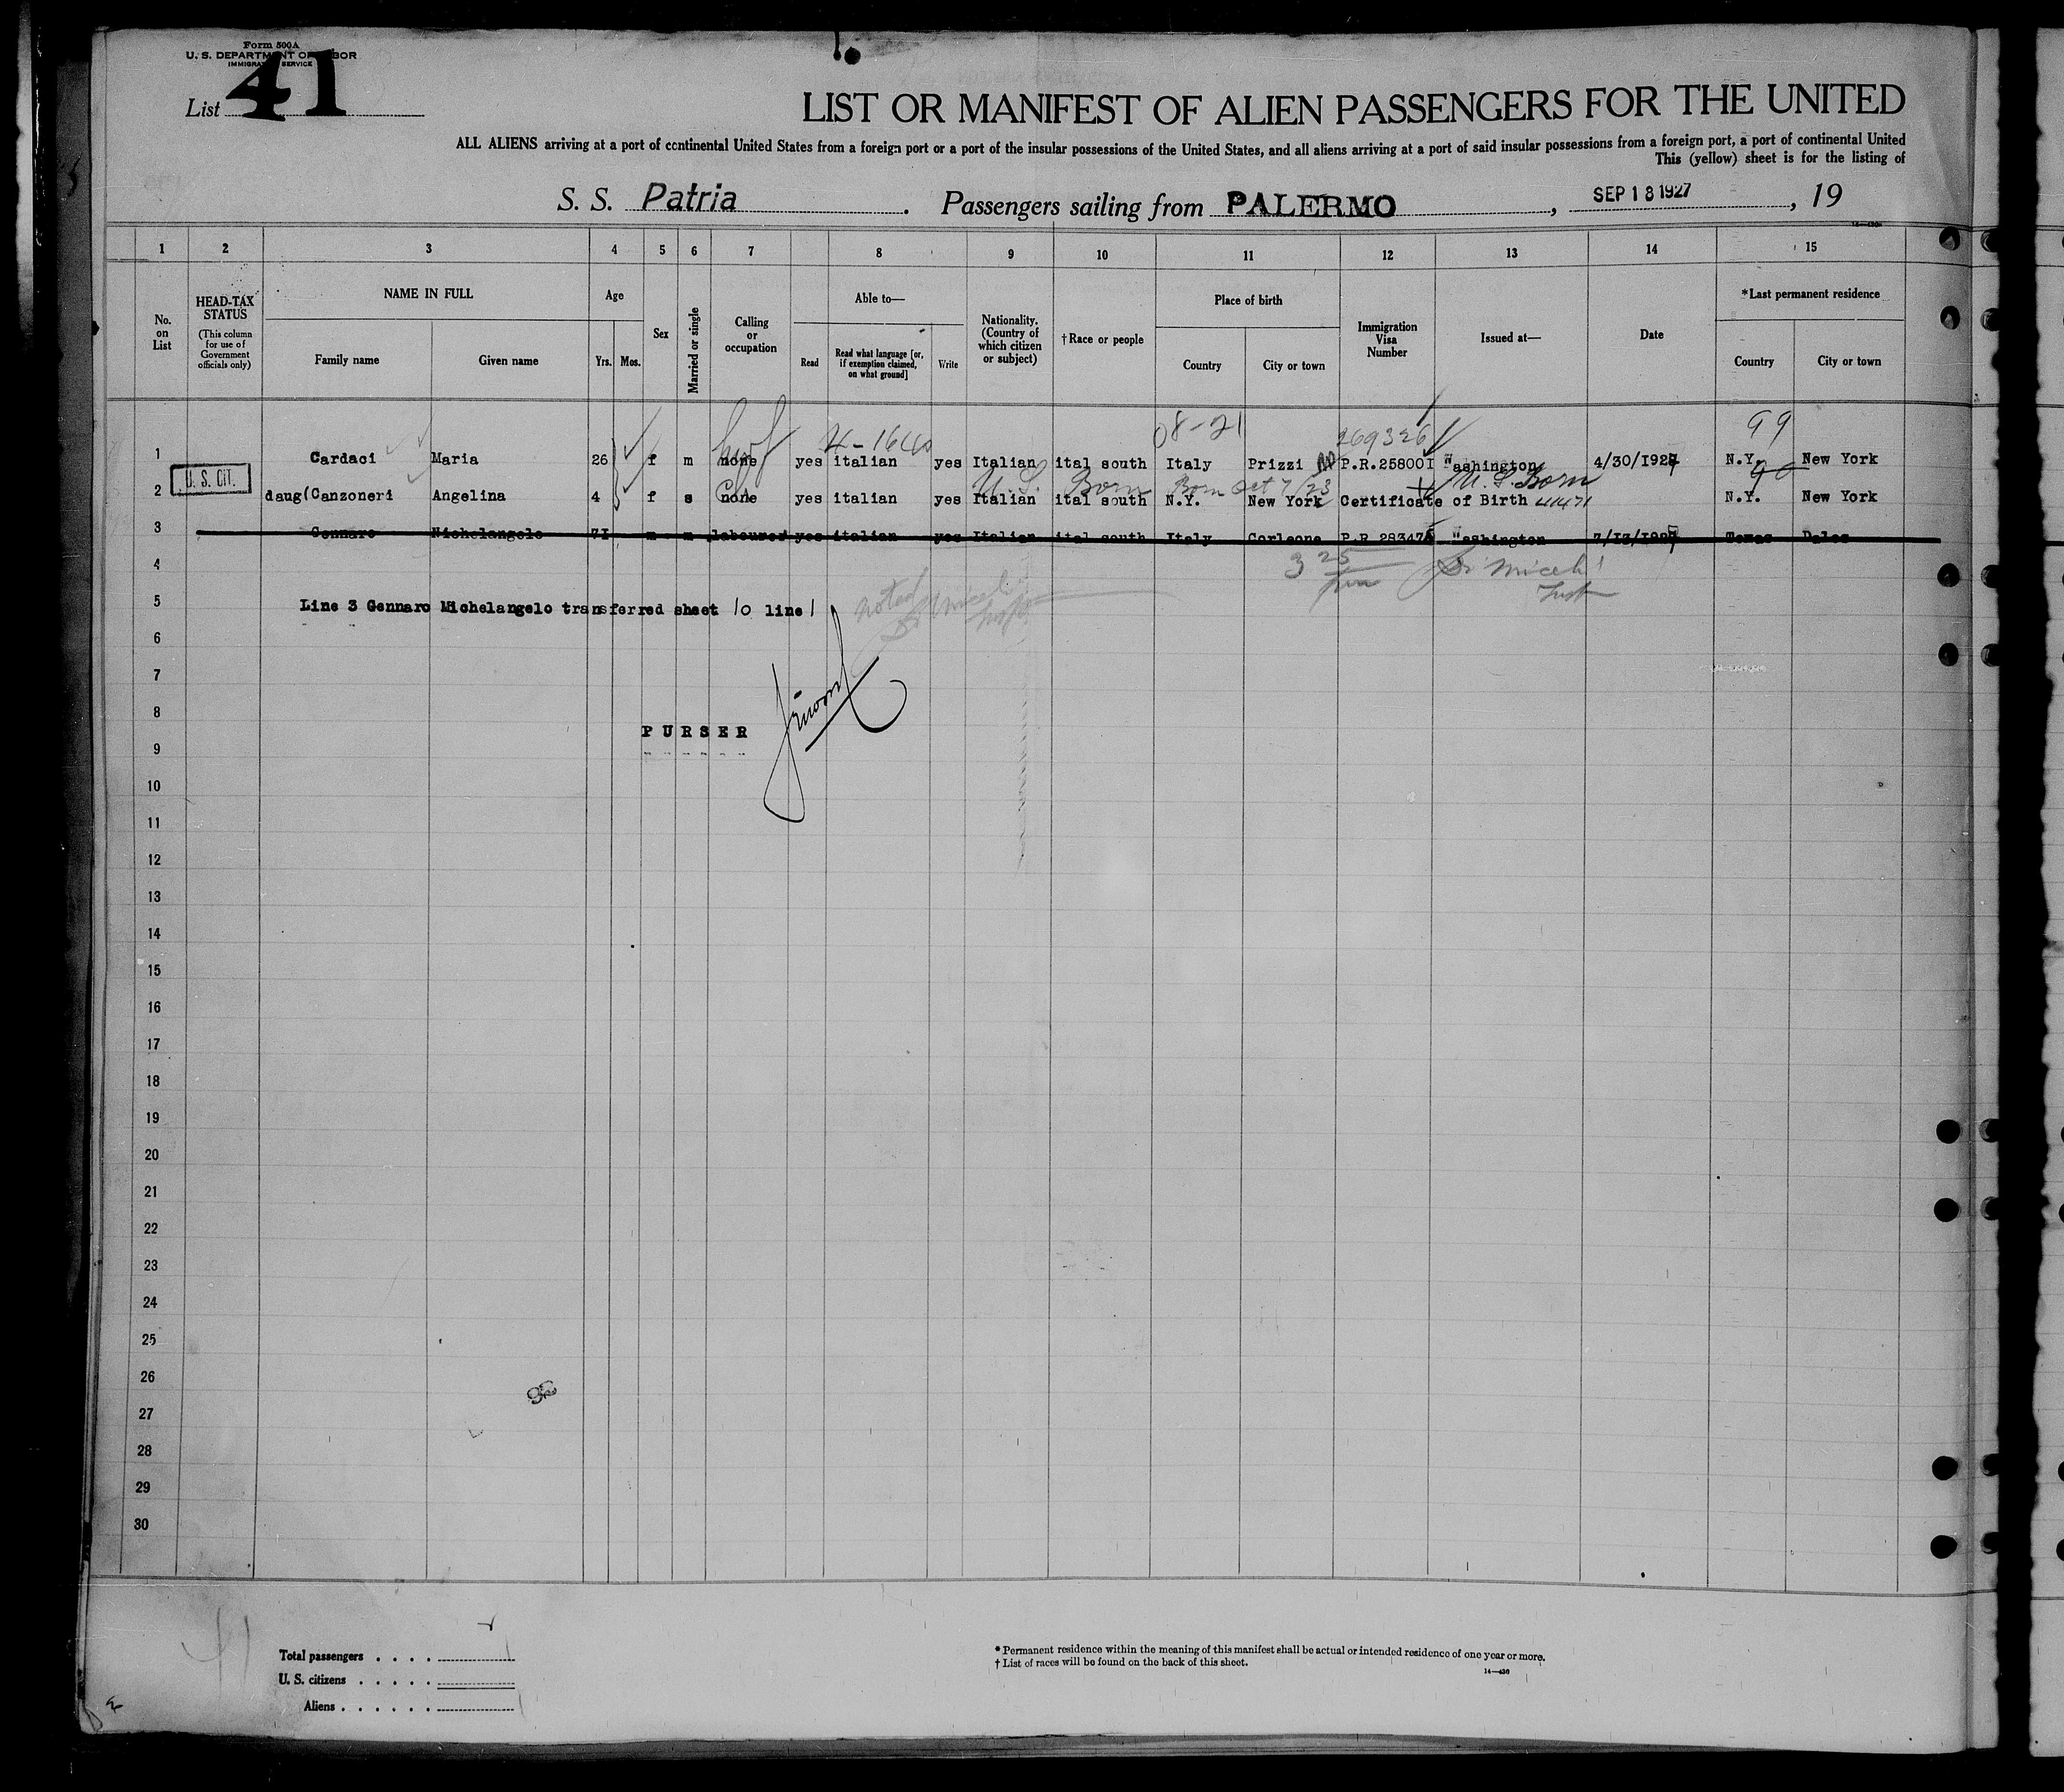 Form 500A
U. S. DEPARTMENT OF LABOR
IMMIGRATION SERVICE
List 41
LIST OR MANIFEST OF ALIEN PASSENGERS FOR THE UNITED
ALL ALIENS arriving at a port of continental United States from a foreign port or a port of the insular possessions of the United States, and all aliens arriving at a port of said insular possessions from a foreign port, a port of continental United
This (yellow) sheet is for the listing of
S. S. Patria . Passengers sailing from PALERMO , SEP 18 1927 , 19
14—430
1 2 3 4 5 6 7 8 9 10 11 12 13 14 15
No. on List
HEAD-TAX STATUS (This column for use of Government officials only)
NAME IN FULL
Family name Given name
Age
Yrs. Mos.
Sex
Married or single
Calling or occupation
Able to—
Read Read what language [or, if exemption claimed, on what ground] Write
Nationality. (Country of which citizen or subject)
†Race or people
Place of birth
Country City or town
Immigration Visa Number
Issued at—
Date
*Last permanent residence
Country City or town
08-21 269326 99
1 Cardaci Maria 26 f m none yes italian yes Italian ital south Italy Prizzi P.R.258001 Washington 4/30/1927 N.Y. New York
U. S. CIT.
U.S. Born Born Oct 7/23 U.S. Born
2 daug(Canzoneri Angelina 4 f s none yes italian yes Italian ital south N.Y. New York Certificate of Birth 41471 N.Y. New York
3 Gennaro Michelangelo 71 m m labourer yes italian yes Italian ital south Italy Corleone P.R.283475 Washington 7/13/1927 Texas Dales
4
5 Line 3 Gennaro Michelangelo transferred sheet 10 line 1 noted
6
7
8
PURSER
9
10
11
12
13
14
15
16
17
18
19
20
21
22
23
24
25
26
27
28
29
30
41
Total passengers . . . .
U. S. citizens . . . . .
Aliens . . . . . .
* Permanent residence within the meaning of this manifest shall be actual or intended residence of one year or more.
† List of races will be found on the back of this sheet.
14—430